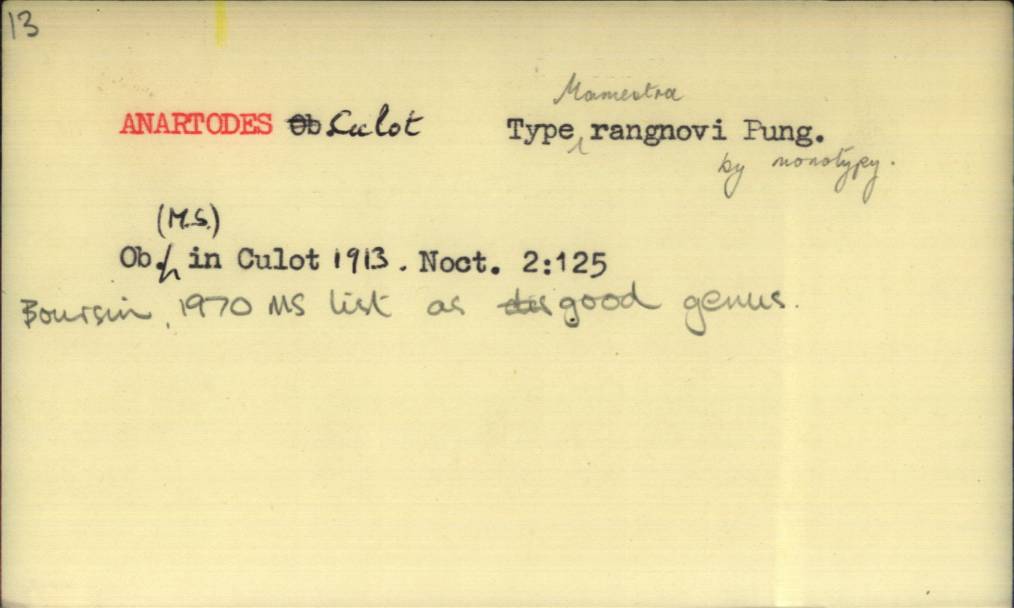 13
Mamestra
ANARTODES Ob Culot Type rangnovi Pung.
by monotypy.
(M.S.)
Ob. in Culot 1913. Noct. 2:125
Boursin, 1970 MS list as dis good genus.